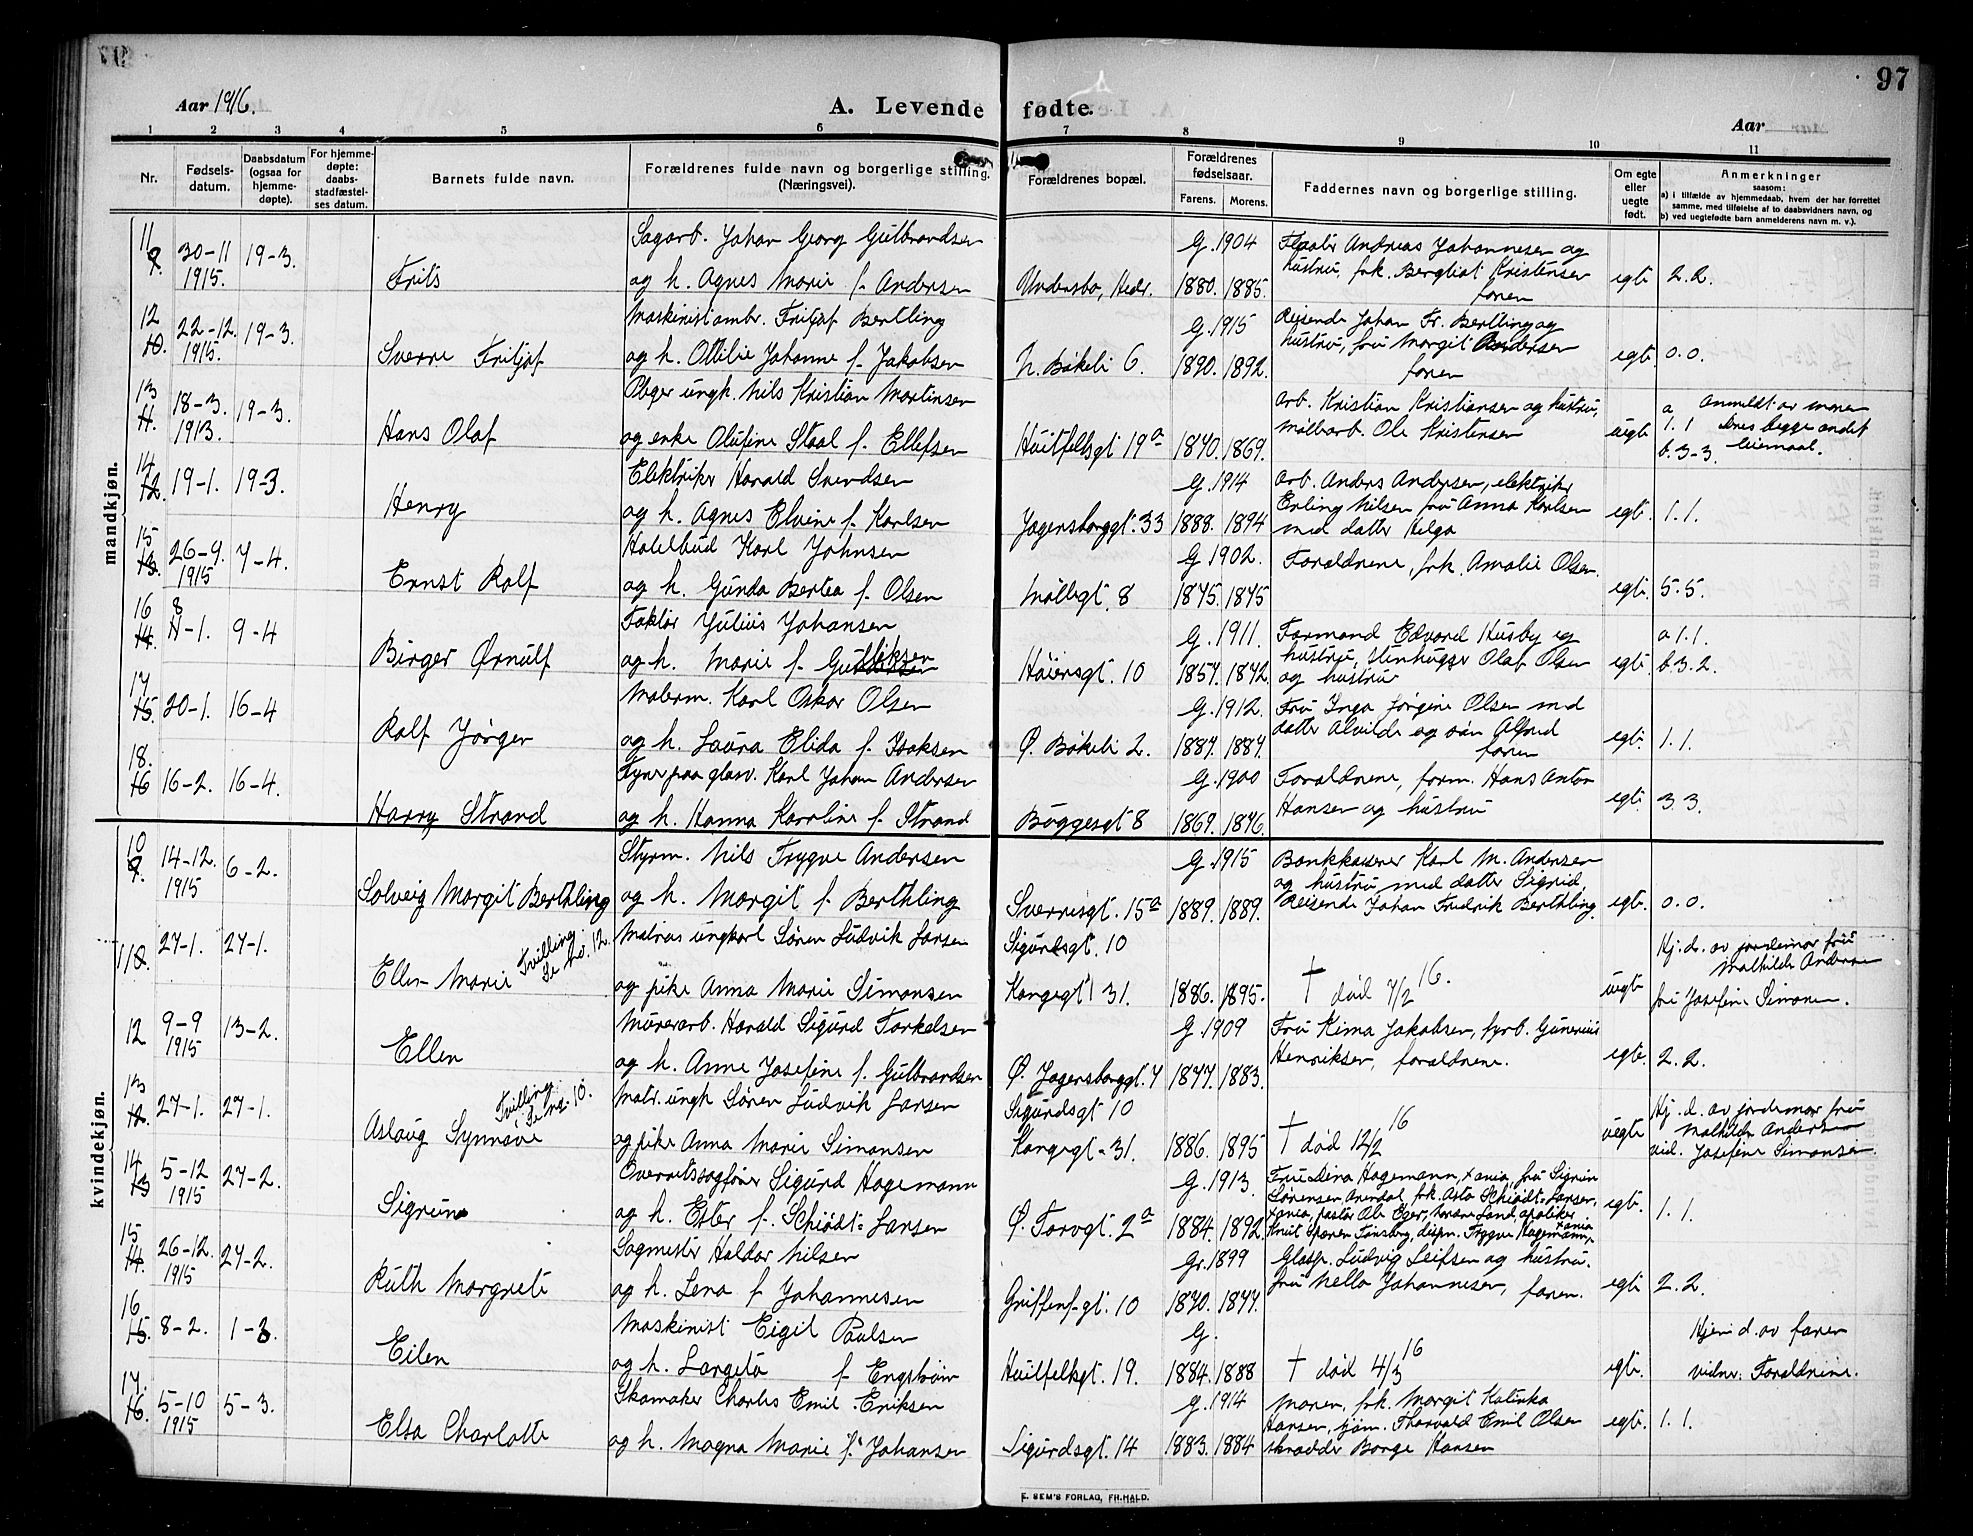 97
Aar 1916.
A. Levende fødte.
Aar
1 2 3 4 5 6 7 8 9 10 11
Nr.
Fødsels-
datum.
Daabsdatum
(ogsaa for
hjemme-
døpte).
For hjemme-
døpte:
daabs-
stadfæstel-
ses datum.
Barnets fulde navn.
Forældrenes fulde navn og borgerlige stilling.
(Næringsvei).
Forældrenes bopæl.
Forældrenes
fødselsaar.
Farens. Morens.
Faddernes navn og borgerlige stilling.
Om egte
eller
uegte
født.
Anmerkninger
saasom:
a) i tilfælde av hjemmedaab, hvem der har forrettet
samme, med tilføielse af to daabsvidners navn, og
b) ved uegtefødte barn anmelderens navn m. v.).
mandkjøn.
11
9. 30-11 1915. 19-3.
Frits
Sagarb. Johan Georg Gulbrandsen
og h. Agnes Marie f. Andersen
Undersbo, Hedr.
G. 1904
1880. 1885.
Andreas Johannesen og
hustru, frk. Bergliot Kristensen
faren
egte
2.2.
12
10. 22-12. 1915. 19-3.
Sverre Fritjof
Maskinistambr. Fritjof Bertling
og h. Ottilie Johanne f. Jakobsen
N. Bøkeli 6.
G. 1915
1890. 1892.
Reisende Johan Fr. Bertling og
hustru, fru Margit Andersen
faren
egte
0.0.
13
11. 18-3. 1913. 19-3.
Hans Olaf
ungk. Nils Kristian Martinsen
og enke Olufine Staal f. Ellefsen
Huitfeltsgt 19a
1870. 1869.
Arb. Kristian Kristiansen og hustru,
Ole Kristensen
uegte
a 1.1
b. 3-3.
Anmeldt av moren
begge andet
leiermaal.
14
12. 19-1. 19-3.
Henry
Elektriker Harald Svendsen
og h. Agnes Elvine f. Karlsen
Jegersborggt. 33
G. 1914
1888. 1894
Arb. Anders Andersen, elektriker
Erling Nilsen fru Anna Karlsen
med datter Helga
egte.
1.1.
15
13. 26-9. 1915 7-4.
Ernst Rolf
Hotelbud Karl Johnsen
og h. Gunda Bertea f. Olsen
Møllegt. 8
G. 1902.
1875. 1875
Forældrene, frk. Amalie Olsen.
egte.
5.5.
16 8
14. 11-1. 9-4
Birger Ørnulf
Faktor Julius Johansen
og h. Marie f.
Høiersgt. 10
G. 1911.
1857. 1872.
Formand Edvard Husby og
hustru, stenhugger Olaf Olsen
og hustru
egte.
a 1.1.
b. 3.2.
17
15. 20-1. 16-4
Rolf Jørger
Malerm. Karl Oskar Olsen
og h. Laura Elida f. Isaksen
Ø. Bøkeli 2.
G. 1912.
1887. 1887.
Fru Inga Jørgine Olsen med
datter Alvilde og søn Alfred
faren
egte.
1.1.
18.
16 16-2. 16-4.
Harry Strand
Fyrer paa glasv. Karl Johan Andersen
og h. Hanna Karoline f. Strand
Byggesgt 8
G. 1900
1869. 1876.
Forældrene, form. Hans Anton
Hansen og hustru
egte.
3.3.
kvindekjøn.
10
9. 14-12. 1915 6-2.
Solveig Margit Berthling
Styrm. Nils Trygve Andersen
og h. Margit f. Berthling
Sverresgt. 15a
G. 1915
1889. 1889.
Bankkasserer Karl M. Andersen
og hustru med datter Sigrid.
Reisende Johan Fredrik Berthling
egte.
0.0.
11 10. 27-1. 27-1.
Ellen Marie
Tvilling.
Se no. 12.
Matros ungkarl Søren Ludvik Larsen
og pike Anna Marie Simonsen
Sigurdsgt. 10
Kongegt 31.
1886. 1895.
† død 7/2 16.
uegte
Hj. d. av jordemor fru
Mathilde Andersen
fru Josefine Simonsen.
12 9-9 1915 13-2.
Ellen
Murerarb. Harald Sigurd Torkelsen
og h. Anne Josefine f. Gulbrandsen
Ø. Jegersborggt. 7
G. 1909
1877. 1883.
Fru Kima Jakobsen, fyrb. Gunerius
Henriksen, forældrene.
egte.
2.2.
13
12. 27-1. 27-1.
Aslaug Synnøve
Tvilling.
Se no. 10.
Matr. ungk Søren Ludvik Larsen
og pike Anna Marie Simonsen
Sigurdsgt 10
Kongegt-31.
1886. 1895
† død 12/2 16
uegte
Hj. d. av jordemor fru
Mathilde Andersen
vid. Josefine Simonsen.
14
13 5-12 1915 27-2.
Sigrun
Overretssagfører Sigurd Hagemann
og h. Ester f. Schiødt-Larsen
Ø. Torvgt. 2a
G. 1913.
1884. 1892.
Fru Lina Hagemann, Xania, fru Sigrun
Sørensen Arendal, frk. Asta Schiødt-Larsen,
Xania, pastor Ole Eger, Lund, apoteker
Knut Sparen Tønsberg, disp. Trygve Hagemann, Xania
egte.
1.1.
15
14. 26-12. 1915 27-2.
Ruth Margrete
Sagmester Haldor Nilsen
og h. Lena f. Johannesen
Griffenf-gt. 10
Gr. 1899
1870. 1877.
Glasp. Ludvig Leifsen og hustru.
fru Nella Johannesen, faren.
egte
2.2.
16
15. 8-2. 1-3.
Eilen
Maskinist Eigil Paulsen
og h. f. Engstrøm
Huitfeltsgt. 19.
G.
1884. 1888
† død 4/3 16
egte.
Hjem d. av faren
vidner: Forældrene.
17.
16. 5-10 1915 5-3.
Elsa Charlotte
Skomaker Charles Emil Eriksen
og h. Magna Marie f. Johansen
Sigurdsgt. 14
G. 1914
1883. 1884
Moren, frk. Margit Katinka
Hansen, sjøm. Thorvald Emil Olsen
skrædder Borge Hansen
egte.
1.1.
E. SEM'S FORLAG, FR.HALD.